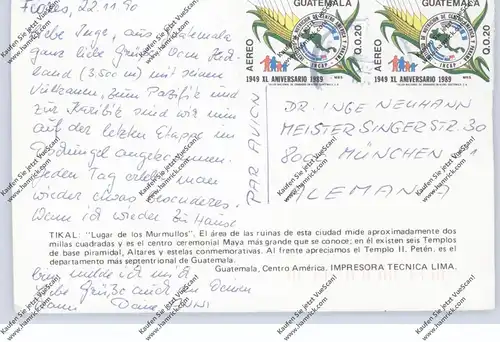 Flores, 22.11.90
Liebe Inge, aus Guatemala
ganz liebe Grüße. Vom Hoch-
land (3.500 m) mit seinen
Vulkanen, zum Pazifik und
zur Karibik sind wir nun
auf der letzten Etappe im
Dschungel angekommen.
Jeden Tag erlebt man
wieder etwas besonderes.
Wenn ich wieder zu Hause
bin, melde ich mich.
Liebe Grüße auch an Deinen
Mann Deine
PAR AVION
GUATEMALA
GUATEMALA
AEREO
Q.0.20
AEREO
Q.0.20
INCAP
INCAP
1949 XL ANIVERSARIO 1989
1949 XL ANIVERSARIO 1989
DR. INGE NEUMANN
MEISTERSINGERSTR. 30
MÜNCHEN
ALEMANIA
TIKAL: "Lugar de los Murmullos". El área de las ruinas de esta ciudad mide aproximadamente dos
millas cuadradas y es el centro ceremonial Maya más grande que se conoce; en él existen seis Templos
de base piramidal, Altares y estelas conmemorativas. Al frente apreciamos el Templo II. Petén, es el
departamento más septentrional de Guatemala.
Guatemala, Centro América. IMPRESORA TECNICA LIMA.
Kaufen Sie jetzt VueScan!
www.hamrick.com